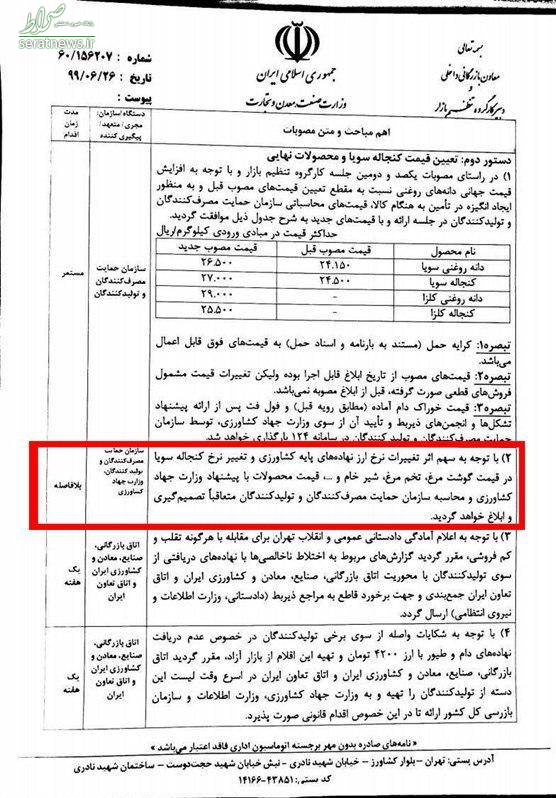 صراط
پایگاه خبری تحلیلی
seratnews.ir
شماره : ۶۰/۱۵۶۲۰۷
تاریخ : ۹۹/۰۶/۲۶
پیوست :
جمهوری اسلامی ایران
وزارت صنعت، معدن و تجارت
بسمه تعالی
معاون بازرگانی داخلی
و
دبیر کارگروه تنظیم بازار
اهم مباحث و متن مصوبات
دستگاه/سازمان:
مجری/ متعهد/
پیگیری کننده
مدت
زمان
اقدام
دستور دوم: تعیین قیمت کنجاله سویا و محصولات نهایی
۱) در راستای مصوبات یکصد و دومین جلسه کارگروه تنظیم بازار و با توجه به افزایش
قیمت جهانی دانه‌های روغنی نسبت به مقطع تعیین قیمت‌های مصوب قبل و به منظور
ایجاد انگیزه در تأمین به هنگام کالا، قیمت‌های محاسباتی سازمان حمایت مصرف‌کنندگان
و تولیدکنندگان در جلسه ارائه و با قیمت‌های جدید به شرح جدول ذیل موافقت گردید.
حداکثر قیمت در مبادی ورودی کیلوگرم/ریال
نام محصول قیمت مصوب قبل قیمت مصوب جدید
دانه روغنی سویا ۲۴.۱۵۰ ۲۶.۵۰۰
کنجاله سویا ۲۴.۵۰۰ ۲۷.۰۰۰
دانه روغنی کلزا - ۲۹.۰۰۰
کنجاله کلزا - ۲۵.۵۰۰
تبصره۱: کرایه حمل (مستند به بارنامه و اسناد حمل) به قیمت‌های فوق قابل اعمال
می‌باشد.
تبصره۲: قیمت‌های مصوب از تاریخ ابلاغ قابل اجرا بوده ولیکن تغییرات قیمت مشمول
فروش‌های قطعی صورت گرفته، قبل از ابلاغ مصوبه نمی‌باشد.
تبصره۳: قیمت خوراک دام آماده (مطابق رویه قبل) و فول فت پس از ارائه پیشنهاد
تشکل‌ها و انجمن‌های ذیربط و تأیید آن از سوی وزارت جهاد کشاورزی، توسط سازمان
حمایت مصرف‌کنندگان و تولیدکنندگان در سامانه ۱۲۴ بارگذاری خواهد شد.
سازمان حمایت
مصرف‌کنندگان
و تولیدکنندگان
مستمر
۲) با توجه به سهم اثر تغییرات نرخ ارز نهاده‌های پایه کشاورزی و تغییر نرخ کنجاله سویا
در قیمت گوشت مرغ، تخم مرغ، شیر خام و ...، قیمت محصولات با پیشنهاد وزارت جهاد
کشاورزی و محاسبه سازمان حمایت مصرف‌کنندگان و تولیدکنندگان متعاقباً تصمیم‌گیری
و ابلاغ خواهد گردید.
سازمان حمایت
مصرف‌کنندگان و
تولید کنندگان،
وزارت جهاد
کشاورزی
بلافاصله
۳) با توجه به اعلام آمادگی دادستانی عمومی و انقلاب تهران برای مقابله با هرگونه تقلب و
کم فروشی، مقرر گردید گزارش‌های مربوط به اختلاط ناخالصی‌ها با نهاده‌های دریافتی از
سوی تولیدکنندگان با محوریت اتاق بازرگانی، صنایع، معادن و کشاورزی ایران و اتاق
تعاون ایران جمع‌بندی و جهت برخورد قاطع به مراجع ذیربط (دادستانی، وزارت اطلاعات و
نیروی انتظامی) ارسال گردد.
اتاق بازرگانی،
صنایع، معادن و
کشاورزی ایران
و اتاق تعاون
ایران
یک
هفته
۴) با توجه به شکایات واصله از سوی برخی تولیدکنندگان در خصوص عدم دریافت
نهاده‌های دام و طیور با ارز ۴۲۰۰ تومان و تهیه این اقلام از بازار آزاد، مقرر گردید اتاق
بازرگانی، صنایع، معادن و کشاورزی ایران و اتاق تعاون ایران در اسرع وقت لیست این
دسته از تولیدکنندگان را تهیه و به وزارت جهاد کشاورزی، وزارت اطلاعات و سازمان
بازرسی کل کشور ارائه تا در این خصوص اقدام قانونی صورت پذیرد.
اتاق بازرگانی،
صنایع، معادن و
کشاورزی ایران
و اتاق تعاون
ایران
یک
هفته
« نامه‌های صادره بدون مهر برجسته اتوماسیون اداری فاقد اعتبار می‌باشد »
آدرس پستی: تهران - بلوار کشاورز - خیابان شهید نادری - نبش خیابان شهید حجت‌دوست - ساختمان شهید نادری
کد پستی: ۴۳۸۵۱-۱۴۱۶۶